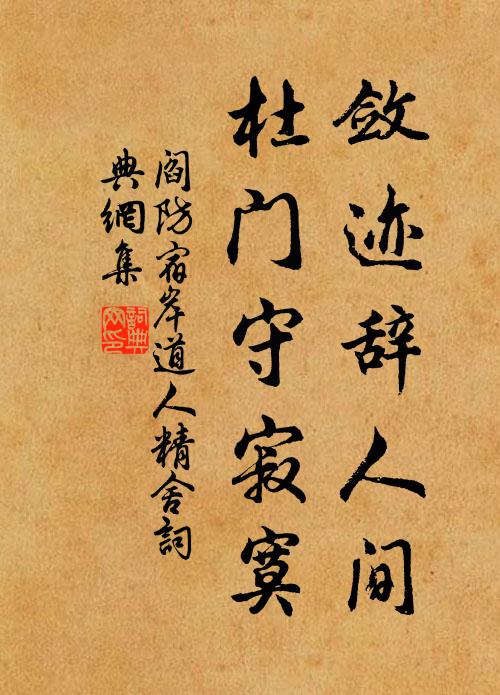 敛迹辞人间
杜门守寂寞
阎防宿岸道人精舍詞
典網集
詞典
网印